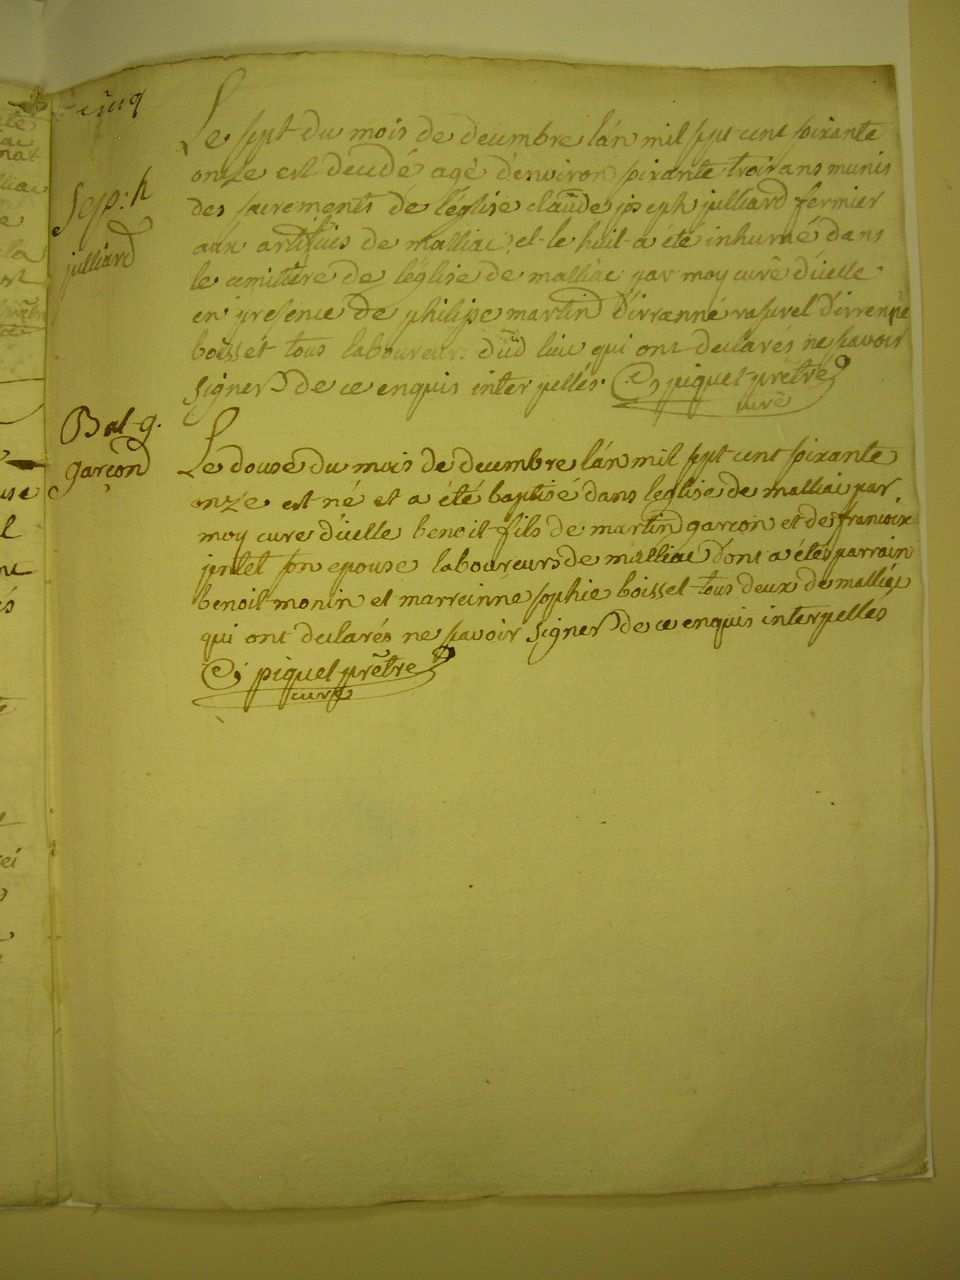 cinq
Sep: h
julliard
Le sept du mois de decembre lán mil sept cent soixante
onze est decedé agé d'environ soixante trois ans munis
des sacrements de l'église claude joseph julliard fermier
aux artifices de malliac, et le huit a été inhumé dans
le cemittere de l'église de malliac par moy curé d'icelle
en présence de philippe martin
boisset tous laboureurs dūd lieu qui ont declarés ne savoir
signer de ce enquis interpellés. C, piquet prêtre
curé
Bat. g.
garçon
Le douse du mois de decembre lán mil sept cent soixante
onze est né et a été baptisé dans leglise de malliac par
moy cure d'icelle benoit fils de martin garcon et de francoise
son epouse laboureurs de malliac dont a étés parrain
benoit monin et marreinne sophie boisset tous deux de malliac
qui ont declarés ne savoir signer de ce enquis interpelles
C, piquet prêtre
curé